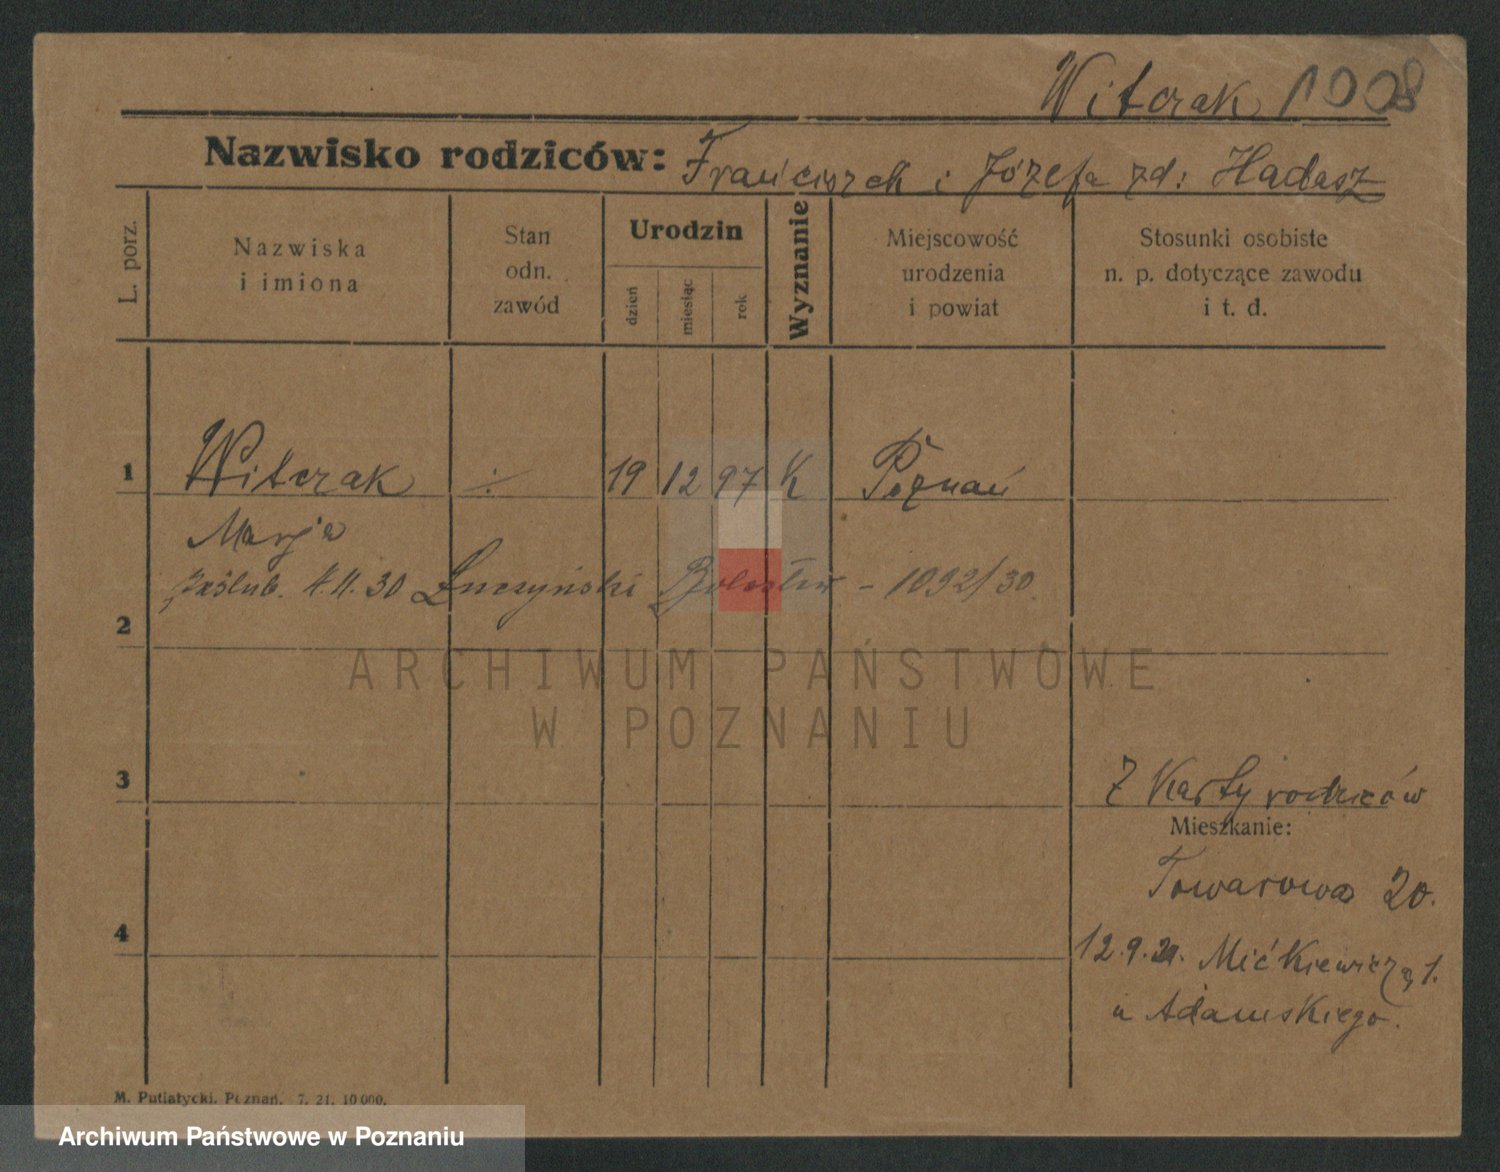 Witczak 1008
Nazwisko rodziców: Franciszek i Józefa zd: Hadasz
L. porz.
Nazwiska
i imiona
Stan
odn.
zawód
Urodzin
dzień
miesiąc
rok
Wyznanie
Miejscowość
urodzenia
i powiat
Stosunki osobiste
n. p. dotyczące zawodu
i t. d.
1 Witczak ./. 19 12 97 K Poznań
Marja
zaślub. 4.11.30 Łuczyński Bolesław - 1092/30.
2
ARCHIWUM PAŃSTWOWE
W POZNANIU
3
Z Karty rodziców
Mieszkanie:
Towarowa 20.
4
12.9. Mićkiewicza 1.
u Adamskiego.
M. Putiatycki, Poznań. 7. 21. 10 000.
Archiwum Państwowe w Poznaniu